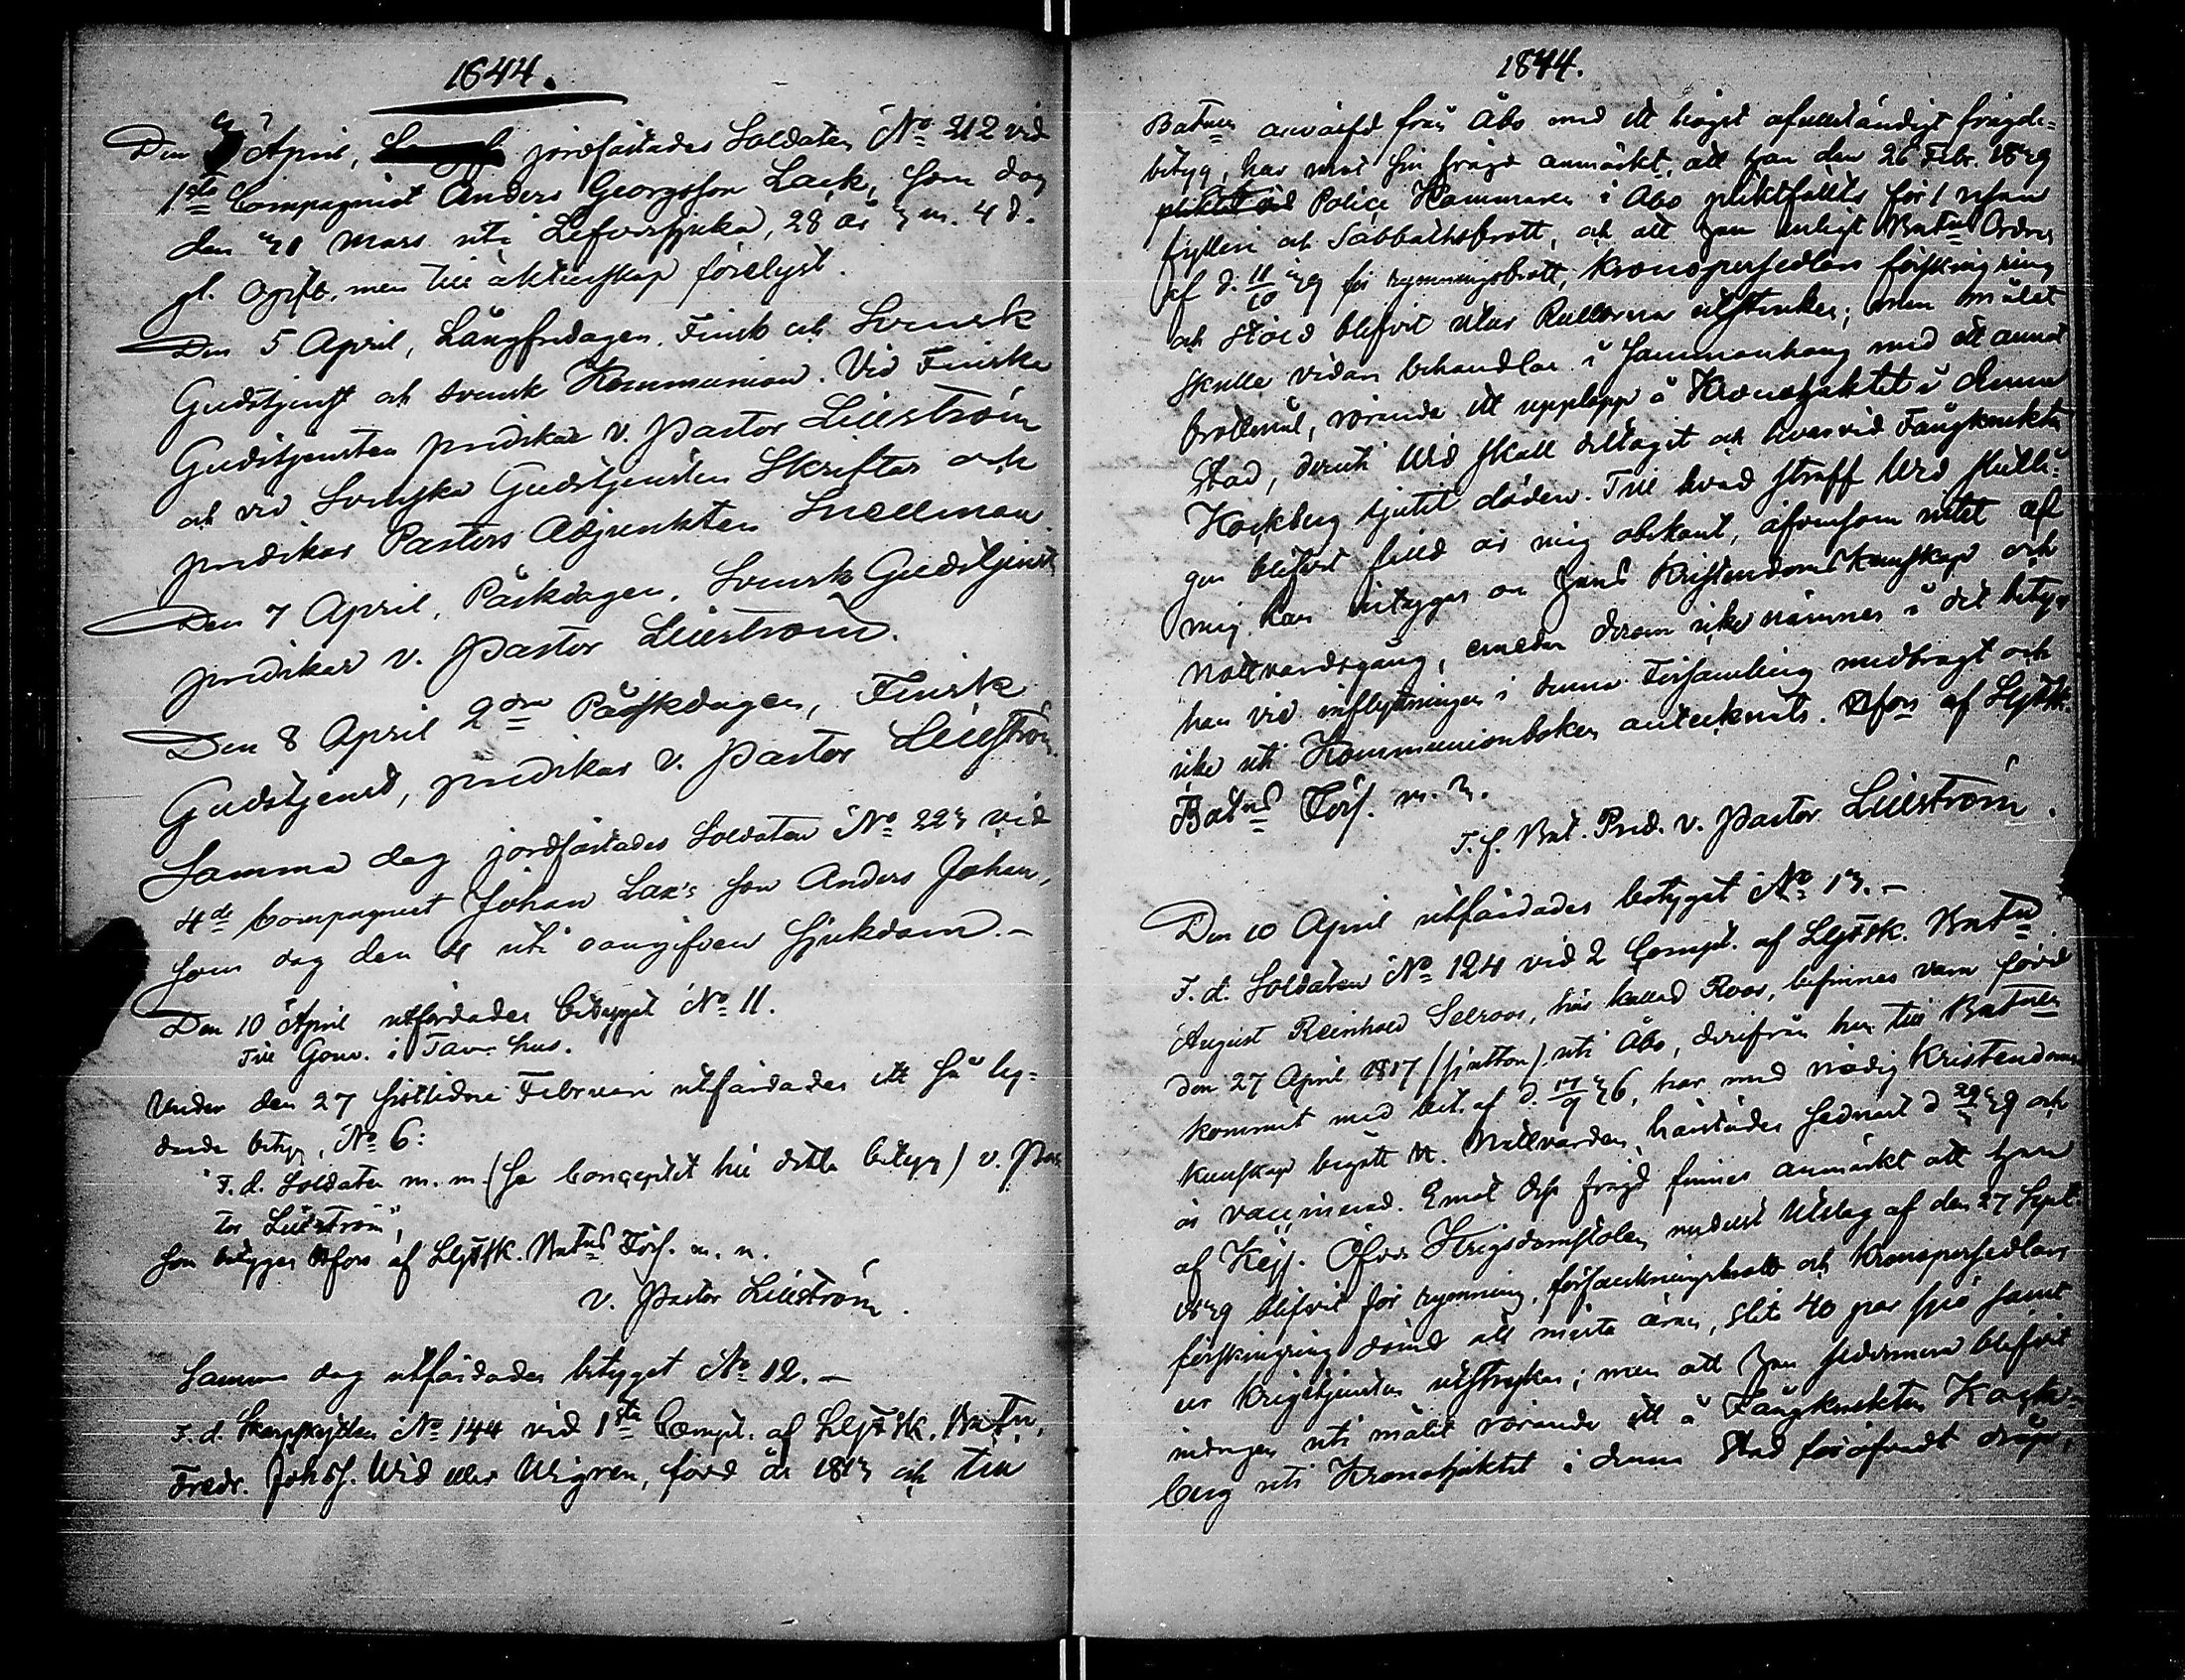 1844.
Den 3 April, jordfästades Soldaten No 212 vid
1sta Compagniet Anders Georgsson Lack, som dog
den 31 Mars uti Lefversjuka, 28 år 3 m. 4 d.
gl. Ogift, men till äktenskap förelyst.
Den 5 April, Långfredagen. Finsk och Svensk
Gudstjenst och svensk Kommunion. Vid Finska
Gudstjensten predikar v. Pastor Lilieström
och vid Svenska Gudstjensten Skriftar och
predikar Pastors Adjunkten Snellman.
Den 7 April, Påskdagen. Svensk Gudstjenst,
predikar v. Pastor Lilieström.
Den 8 April 2dra Påskdagen, Finsk
Gudstjenst, predikar v. Pastor Lilieström.
Samma dag jordfästades Soldaten No 223 vid
4de Compagniet Johan Lax's son Anders Johan,
som dog den 4 uti oangifven sjukdom. –
Den 10 April utfärdades betyget No 11.
Till Gouv. i Tav. hus.
Under den 27 sistlidne Februari utfärdades ett så ly=
dande betyg, No 6:
"F. d. Soldaten m. m. (Se Conceptet till detta betyg) v. Pas
tor Lilieström",
som betygar H:fors af LljfSk. Batns Förs. m. n.
v. Pastor Lilieström.
Samma dag utfärdades betyget No 12. –
F. d. Skarpskytten No 144 vid 1sta Comp. af LljfSk. Batn,
Fredr. Johss. Wid eller Wigren, född år 1813 och till
1844.
Batnen anvälfd från Åbo med ett högst ofullständigt frägde=
betyg, har mot sin frägd anmärkt, att han den 26 Febr. 1839
Police Kammaren i Åbo pliktfällts för 1 resan
fylleri och Sabbathsbrott, och att han enligt Batns Ordres
af d. 11/10 39 för rymningsbrott, Kronopersedlars förskingring
och stöld blifvit utur Rullorna utstruken; men målet
skulle vidare behandlas i sammanhang med ett annat
brottmål, rörande ett upplopp å Kronohäktet i denna
Stad, deruti Wid skall deltagit och hvarvid Fångknekten
Hackberg ljutit döden. Till hvad straff Wid skulle
blifvit fälld är mig obekant, äfvensom intet af
mig kan betygas om hans Kristendoms Kunskap och
Nattvardsgång, emedan derom icke nämnes i det betyg
han vid inflyttningen i denna Församling medbragt och
icke uti Kommunionboken antecknats. H:fors af LljfSk.
Batns Förs. m. n.
T. f. Bat. Pred. v. Pastor Lilieström.
Den 10 April utfärdades betyget No 13. –
F. d. Soldaten No 124 vid 2 Comp. af LljfSk. Batn
August Reinhold Selroos, här kallad Roos, befinnes vara född
den 27 April 1817 (sjutton) uti Åbo, derifrån han till Batnen
kommit med bet. af d. 36, har med nödig Kristendoms
kunskap begått H. Nattvarden, härstädes sednast d 39 och
är vaccinerad. Emot dess frägd finnes anmärkt att han
af Kejs. Öfver Krigsdomstolen medelst Utslag af den 27 Sept
1839 blifvit för rymning, försnillningsbrott och Kronopersedlars
förskingring dömd att mista äran, slita 40 par spö samt
ur Krigstjensten utstrykas; men att han sedermera blifvit
indragen uti målet rörande ett å Fångknekten Hack=
berg uti Kronohäktet i denna Stad föröfvadt dråp,